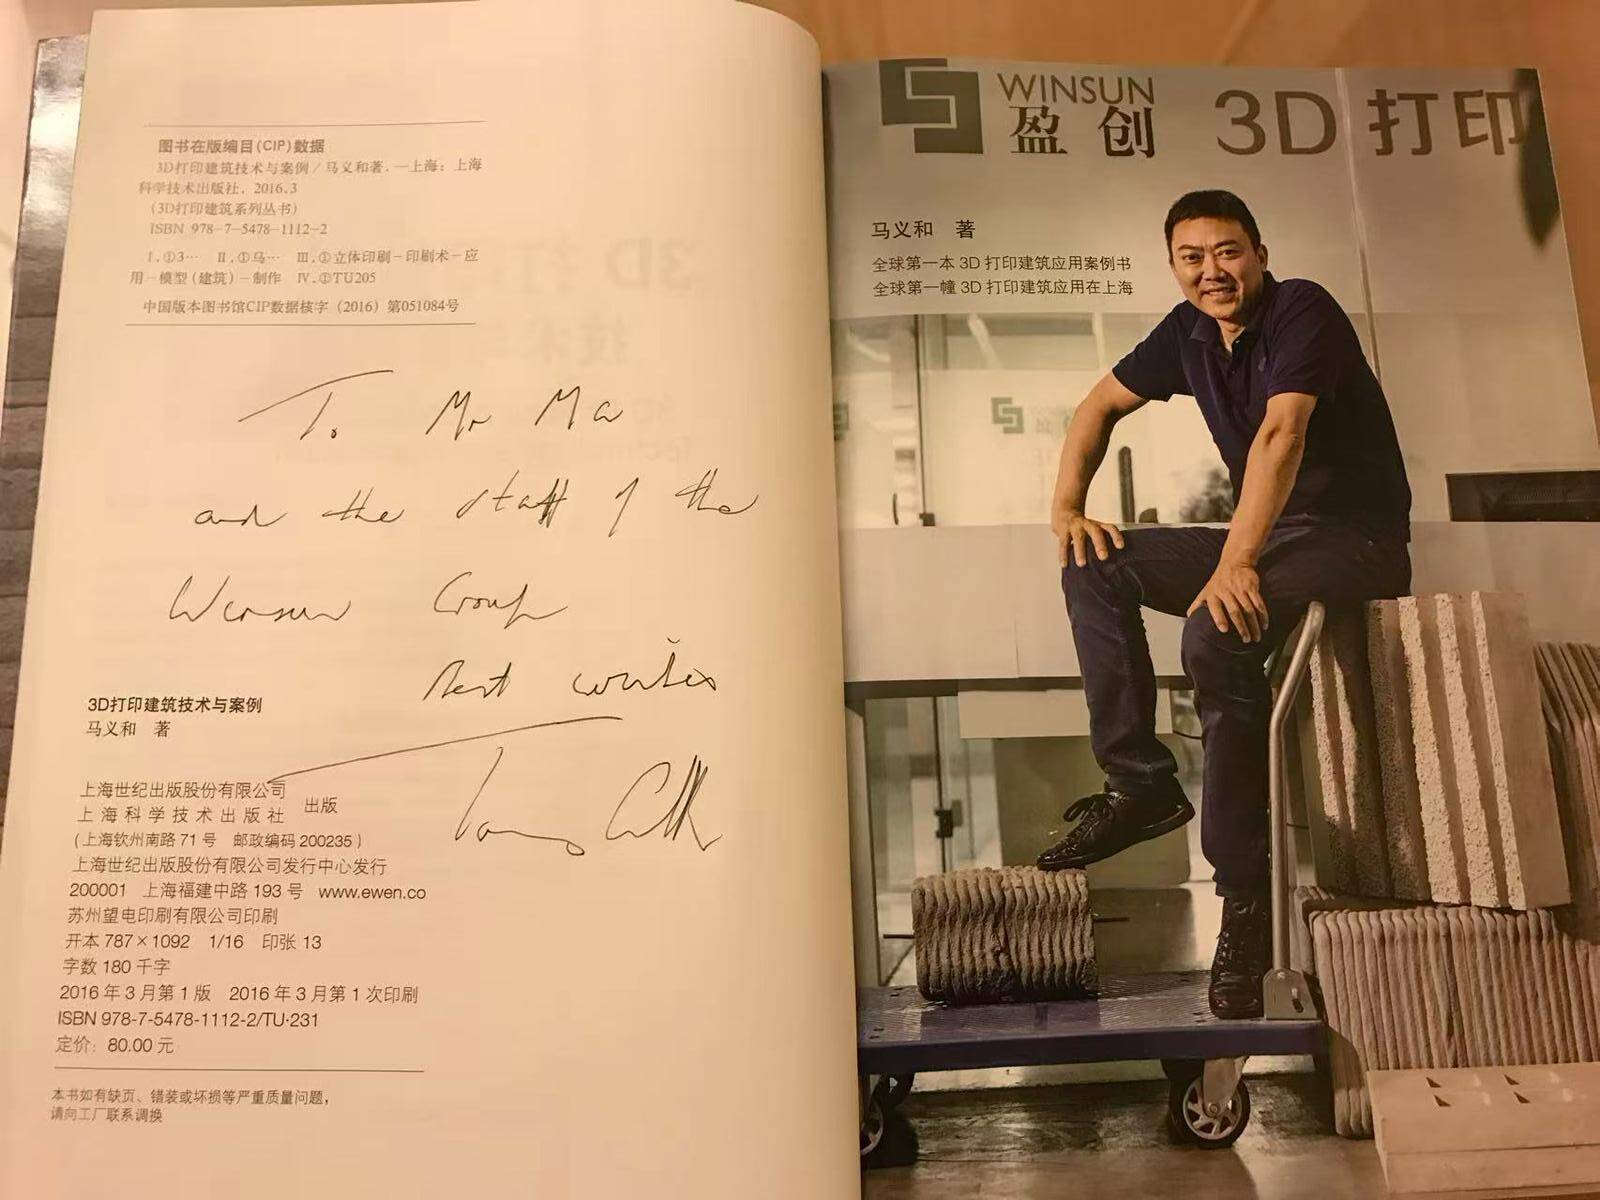 图书在版编目(CIP)数据
3D打印建筑技术与案例／马义和著.—上海：上海
科学技术出版社，2016.3
（3D打印建筑系列丛书）
ISBN 978-7-5478-1112-2
Ⅰ.①3… Ⅱ.①马… Ⅲ.①立体印刷－印刷术－应
用－模型（建筑）－制作 Ⅳ.①TU205
中国版本图书馆CIP数据核字（2016）第051084号
To Mr Ma
and the staff of the
Winsun Group
Best wishes
3D打印建筑技术与案例
马义和 著
上海世纪出版股份有限公司
上海科学技术出版社 出版
(上海钦州南路71号 邮政编码200235)
上海世纪出版股份有限公司发行中心发行
200001 上海福建中路193号 www.ewen.co
苏州望电印刷有限公司印刷
开本 787×1092 1/16 印张 13
字数 180 千字
2016年3月第1版 2016年3月第1次印刷
ISBN 978-7-5478-1112-2/TU·231
定价：80.00元
本书如有缺页、错装或坏损等严重质量问题，
请向工厂联系调换
WINSUN
盈创 3D打印
马义和 著
全球第一本3D打印建筑应用案例书
全球第一幢3D打印建筑应用在上海